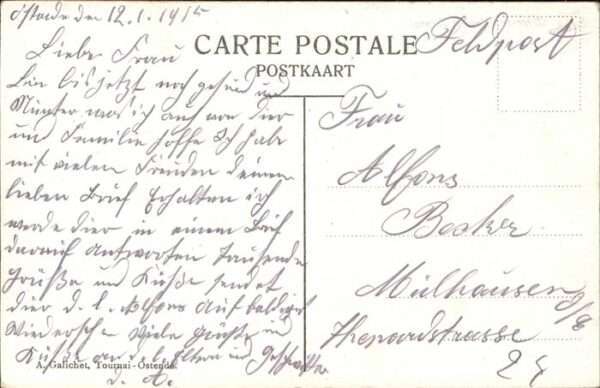 Ostende den 12.1.1915
Liebe Frau
Bin bis jetzt noch gesund und
Munter was ich auch von dir
und Familie hoffe Ich hab
mit vielen Freuden deinen
lieben Brief Erhalten ich
werde dier in einem Brief
darauf antworten tausende
Grüße und Küsse sendet
dier d. l. Alfons auf baldiges
Wiedersehen Viele Grüße und
Küsse an die Eltern und Geschwister
d. A.
CARTE POSTALE
POSTKAART
Feldpost
Frau
Alfons
Becker
Mülhausen i/E
Thenardstrasse
24
A. Galichet, Tournai-Ostende.